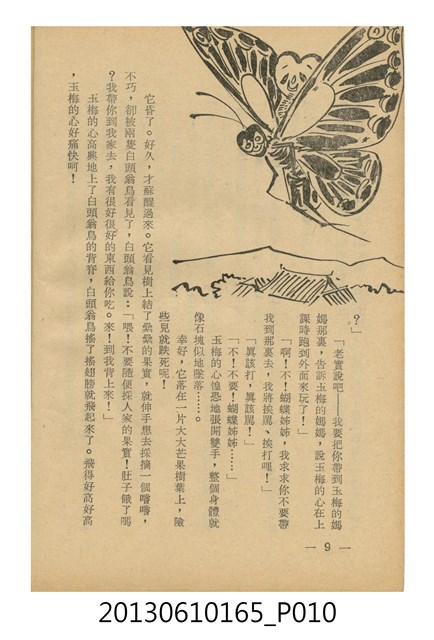 ？」
「老實說吧——我要把你帶到玉梅的媽
媽那裏，告訴玉梅的媽媽，說玉梅的心在上
課時跑到外面來玩了！」
「啊！不！蝴蝶姊姊，我求求你不要帶
我到那裏去，我將挨罵、挨打哩！」
「眞該打，眞該罵！」
「不！不要！蝴蝶姊姊……」
玉梅的心惶恐地張開雙手，整個身體就
像石塊似地墜落……。
幸好，它落在一片大大芒果樹葉上，險
些兒就跌死呢！
它昏了。好久，才蘇醒過來。它看見樹上結了纍纍的果實，就伸手想去採摘一個嚐嚐，
不巧，卻被兩隻白頭翁鳥看見了，白頭翁鳥說：「喂！不要隨便採人家的果實！肚子餓了嗎
？我帶你到我家去，我有很好很好的東西給你吃。來！到我背上來！」
玉梅的心高興地上了白頭翁鳥的背脊，白頭翁鳥搖了搖翅膀就飛起來了。飛得好高好高
，玉梅的心好痛快啊！
— 9 —
20130610165_P010